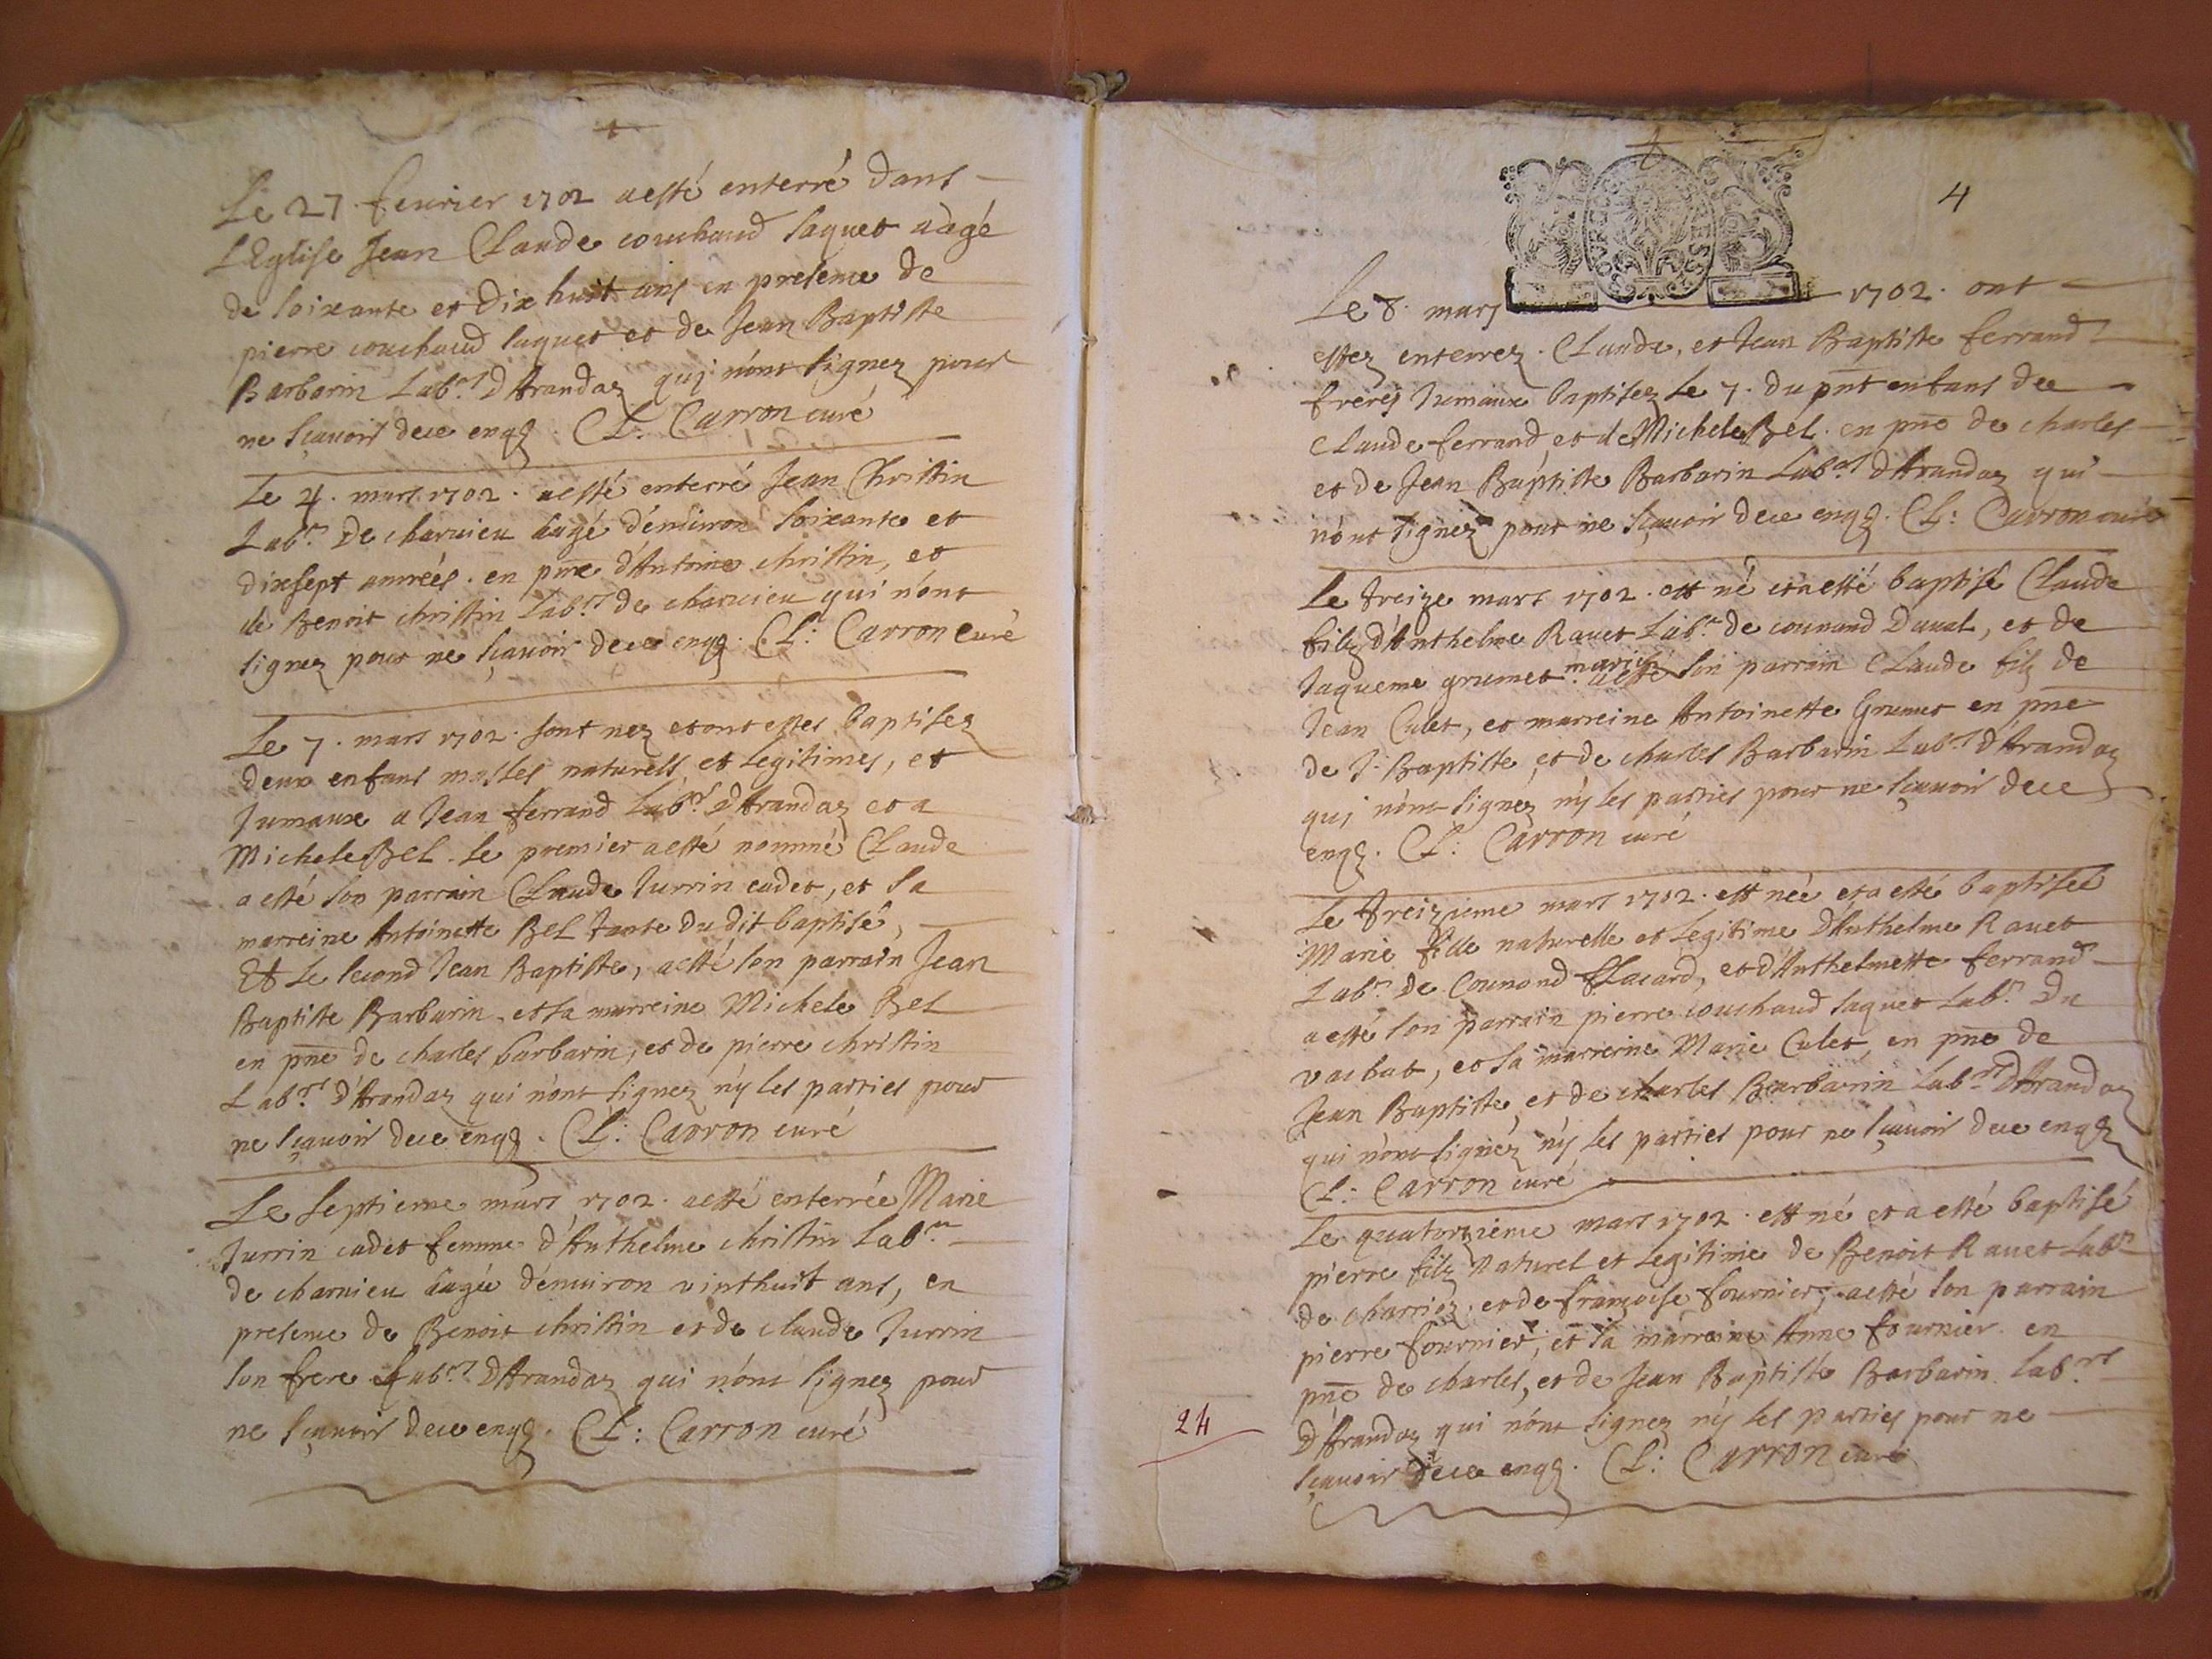 Le 27 feurier 1702 a esté enterré dans
L'Eglise Jean Claude couchaud Jaquet aâgé
de soixante et dix huit ans en presence de
pierre couchaud Jaquet et de Jean Baptiste
Barbarin Lab.rs D'Arandaz qui n'ont signez pour
ne sçauoir de ce enqz. Cl: Carron curé
Le 4. mars 1702. a esté enterré Jean Christin
Lab.r De charuieu âagé d'enuiron soixante et
dixsept années. en pnce d'Antoine christin, et
de Benoit christin Lab.rs de charuieu qui n'ont
signez pour ne sçauoir de ce enqz. Cl: Carron curé
Le 7. mars 1702. sont nez et ont estes baptisez
deux enfans masles naturels et legitimes, et
Jumaux a Jean ferrand Lab.r D'Arandaz et a
Michele Bel. le premier a esté nommé Claude
a esté son parrain Claude Jurrin cadet, et sa
marreine Antoinette Bel tante du dit baptisé,
Et le second Jean Baptiste, a esté son parrain Jean
Baptiste Barbarin, et sa marreine Michele Bel
en pnce de charles barbarin, et de pierre christin
Lab.rs D'Arandaz qui n'ont signez n'y les parties pour
ne sçauoir de ce enqz. Cl: Carron curé
Le septieme mars 1702. a esté enterrée Marie
Jurrin cadet femme d'Anthelme christin Lab.r
de charuieu âagée d'enuiron vinthuit ans, en
presence de Benoit christin et de claude Jurrin
son frere Lab.rs D'Arandaz qui n'ont signez pour
ne sçauoir de ce enqz. Cl: Carron curé
4
Le 8. mars 1702. ont
estez enterrez. Claude, et Jean Baptiste ferrand
freres Jumaux baptisez le 7. du pnt enfans de
Claude ferrand et de Michele Bel. en pnce de charles
et de Jean Baptiste Barbarin Lab.rs d'Arandaz qui
n'ont signez pour ne sçauoir de ce enqz. Cl: Carron curé
Le treize mars 1702. est né et a esté baptisé Claude
filz d'Anthelme Rauet Lab.r de counand Daual, et de
Jaqueme grumet mariez a esté son parrain Claude filz de
Jean Culet, et marreine Antoinette Grumet en pnce
de J. Baptiste et de charles Barbarin Lab.rs d'Arandaz
qui n'ont signéz n'y les parties pour ne sçauoir de ce
enqz. Cl: Carron curé
Le treizieme mars 1702. est née et a esté baptisée
Marie fille naturelle et legitime D'Anthelme Rauet
Lab.r De Counand flacard, et d'Anthelmette ferrand
a esté son parrain pierre couchaud Jaquet Lab.r Du
vachat, et sa marreine Marie Culet, en pnce de
Jean Baptiste et de charles Barbarin Lab.rs D'Arandaz
qui n'ont signéz n'y les parties pour ne sçauoir de ce enqz
Cl: Carron curé
Le quatorzieme mars 1702. est né et a esté baptisé
pierre filz naturel et legitime de Benoit Rauet Lab.r
de charriez, et de françoise fournier, a esté son parrain
pierre fournier, et sa marreine Anne fournier. en
pnce de charles, et de Jean Baptiste Barbarin Lab.rs
24
D'Arandaz qui n'ont signez n'y les parties pour ne
sçauoir de ce enqz. Cl: Carron curé